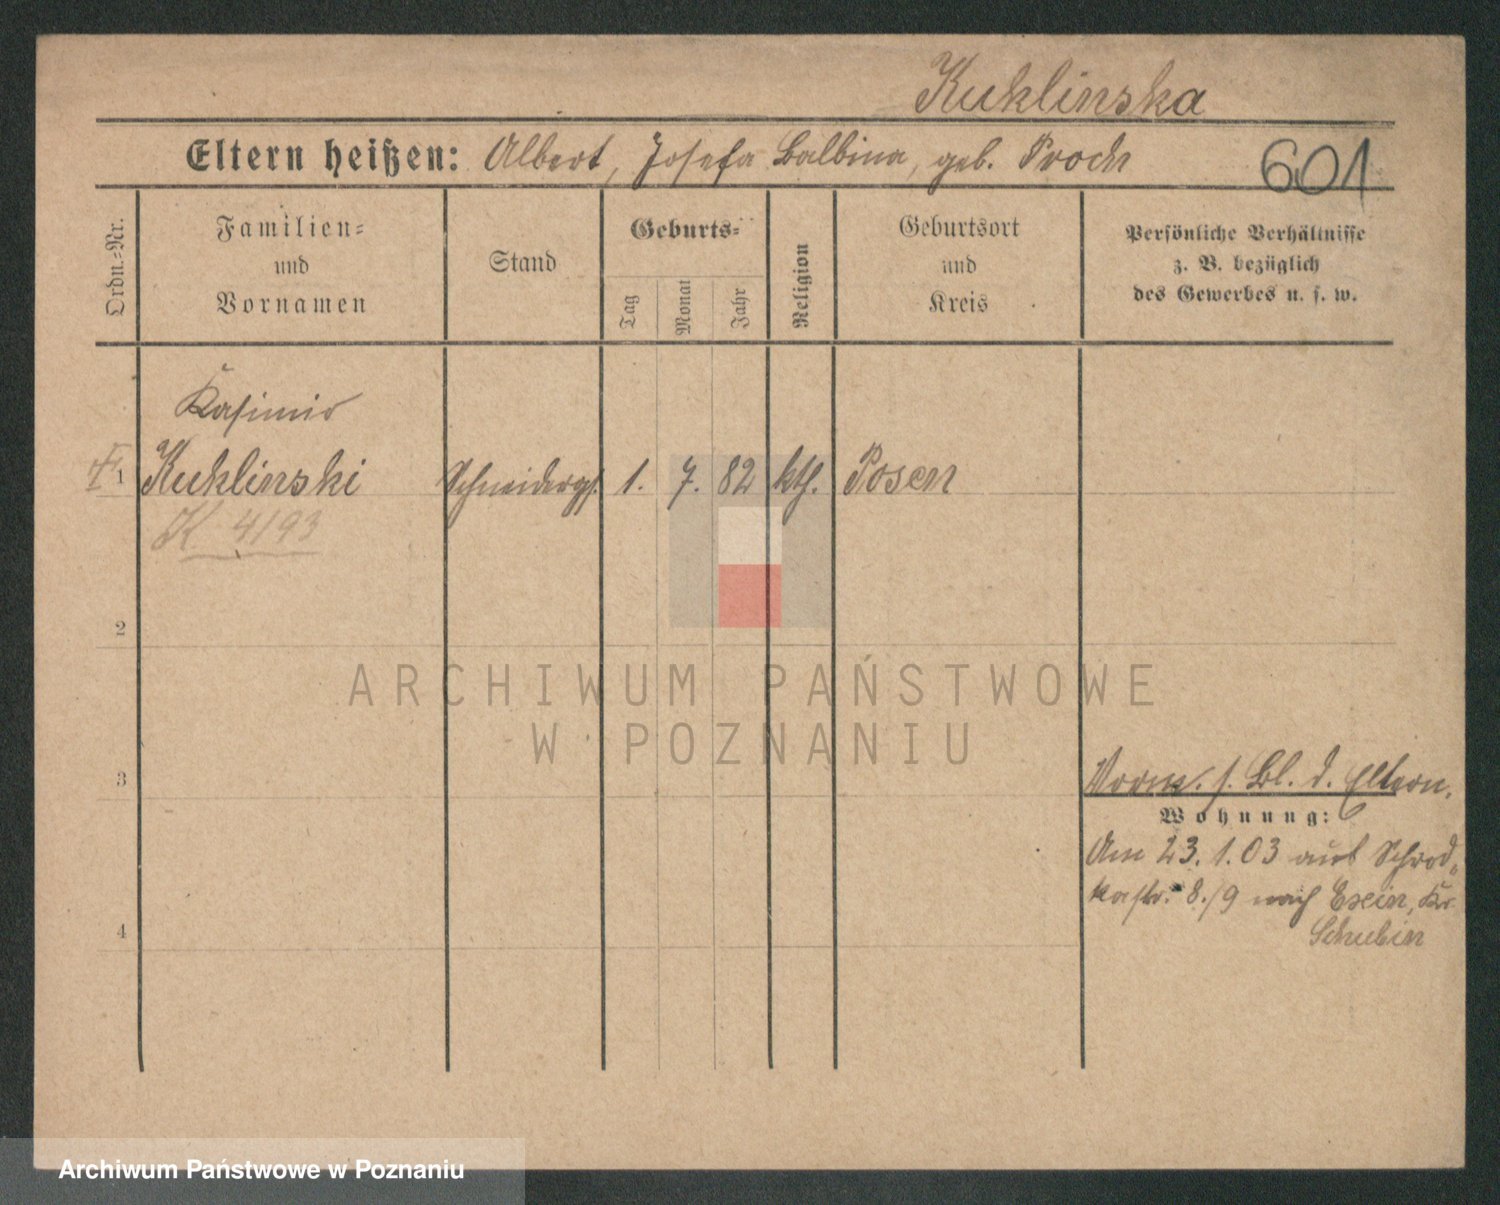 Kuklinska
Eltern heißen: Albert, Josefa Balbina, geb. Proch
601
Ordn.=Nr.
Familien=
und
Vornamen
Stand
Geburts=
Tag
Monat
Jahr
Religion
Geburtsort
und
Kreis
Persönliche Verhältnisse
z. B. bezüglich
des Gewerbes u. s. w.
Kasimir
1 Kuklinski Schneiderges. 1. 7. 82 kth. Posen
K 4193
2
ARCHIWUM PAŃSTWOWE
W POZNANIU
3
s. Bl. d. Eltern.
Wohnung:
Am 23. 1. 03 aus Schrod-
kastr. 8./9 nach Exin, Kr.
Schubin
4
Archiwum Państwowe w Poznaniu